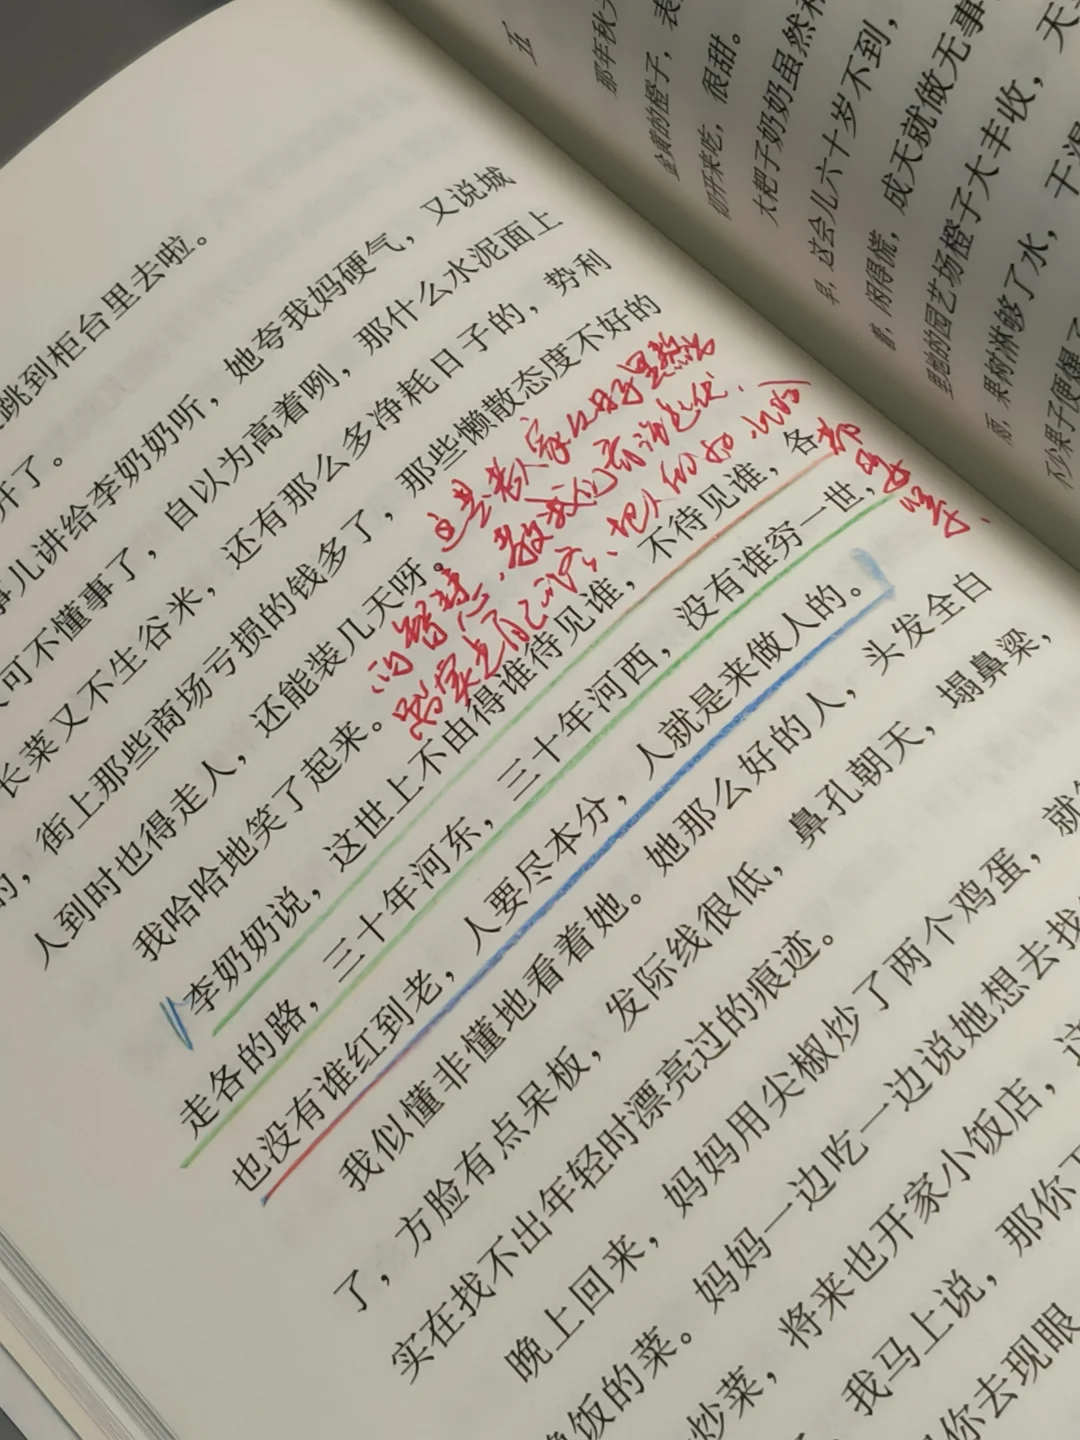 跳到柜台里去啦。
开了。
事儿讲给李奶奶听，她夸我妈硬气，又说城
可不懂事了，自以为高着咧，那什么水泥面上
长菜又不生谷米，还有那么多净耗日子的，势利
的，街上那些商场亏损的钱多了，那些懒散态度不好的
人到时也得走人，还能装几天呀。
我哈哈地笑了起来。
李奶奶说，这世上不由得谁待见谁，不待见谁，各
走各的路，三十年河东，三十年河西，没有谁穷一世，
也没有谁红到老，人要尽本分，人就是来做人的。
我似懂非懂地看着她。她那么好的人，头发全白
了，方脸有点呆板，发际线很低，鼻孔朝天，塌鼻梁，
实在找不出年轻时漂亮过的痕迹。
晚上回来，妈妈用尖椒炒了两个鸡蛋，就
晚饭的菜。妈妈一边吃一边说她想去找
炒菜，将来也开家小饭店，这
，我马上说，那你
你去现眼
这是
的智慧
踏实走自己的
五
那年秋天
金黄的橙子，表
切开来吃，很甜。
大耙子奶奶虽然
具，这会儿六十岁不到，
着，闲得慌，成天就做无事
里她的园艺场橙子大丰收，天
雨，果树淋够了水，干湿